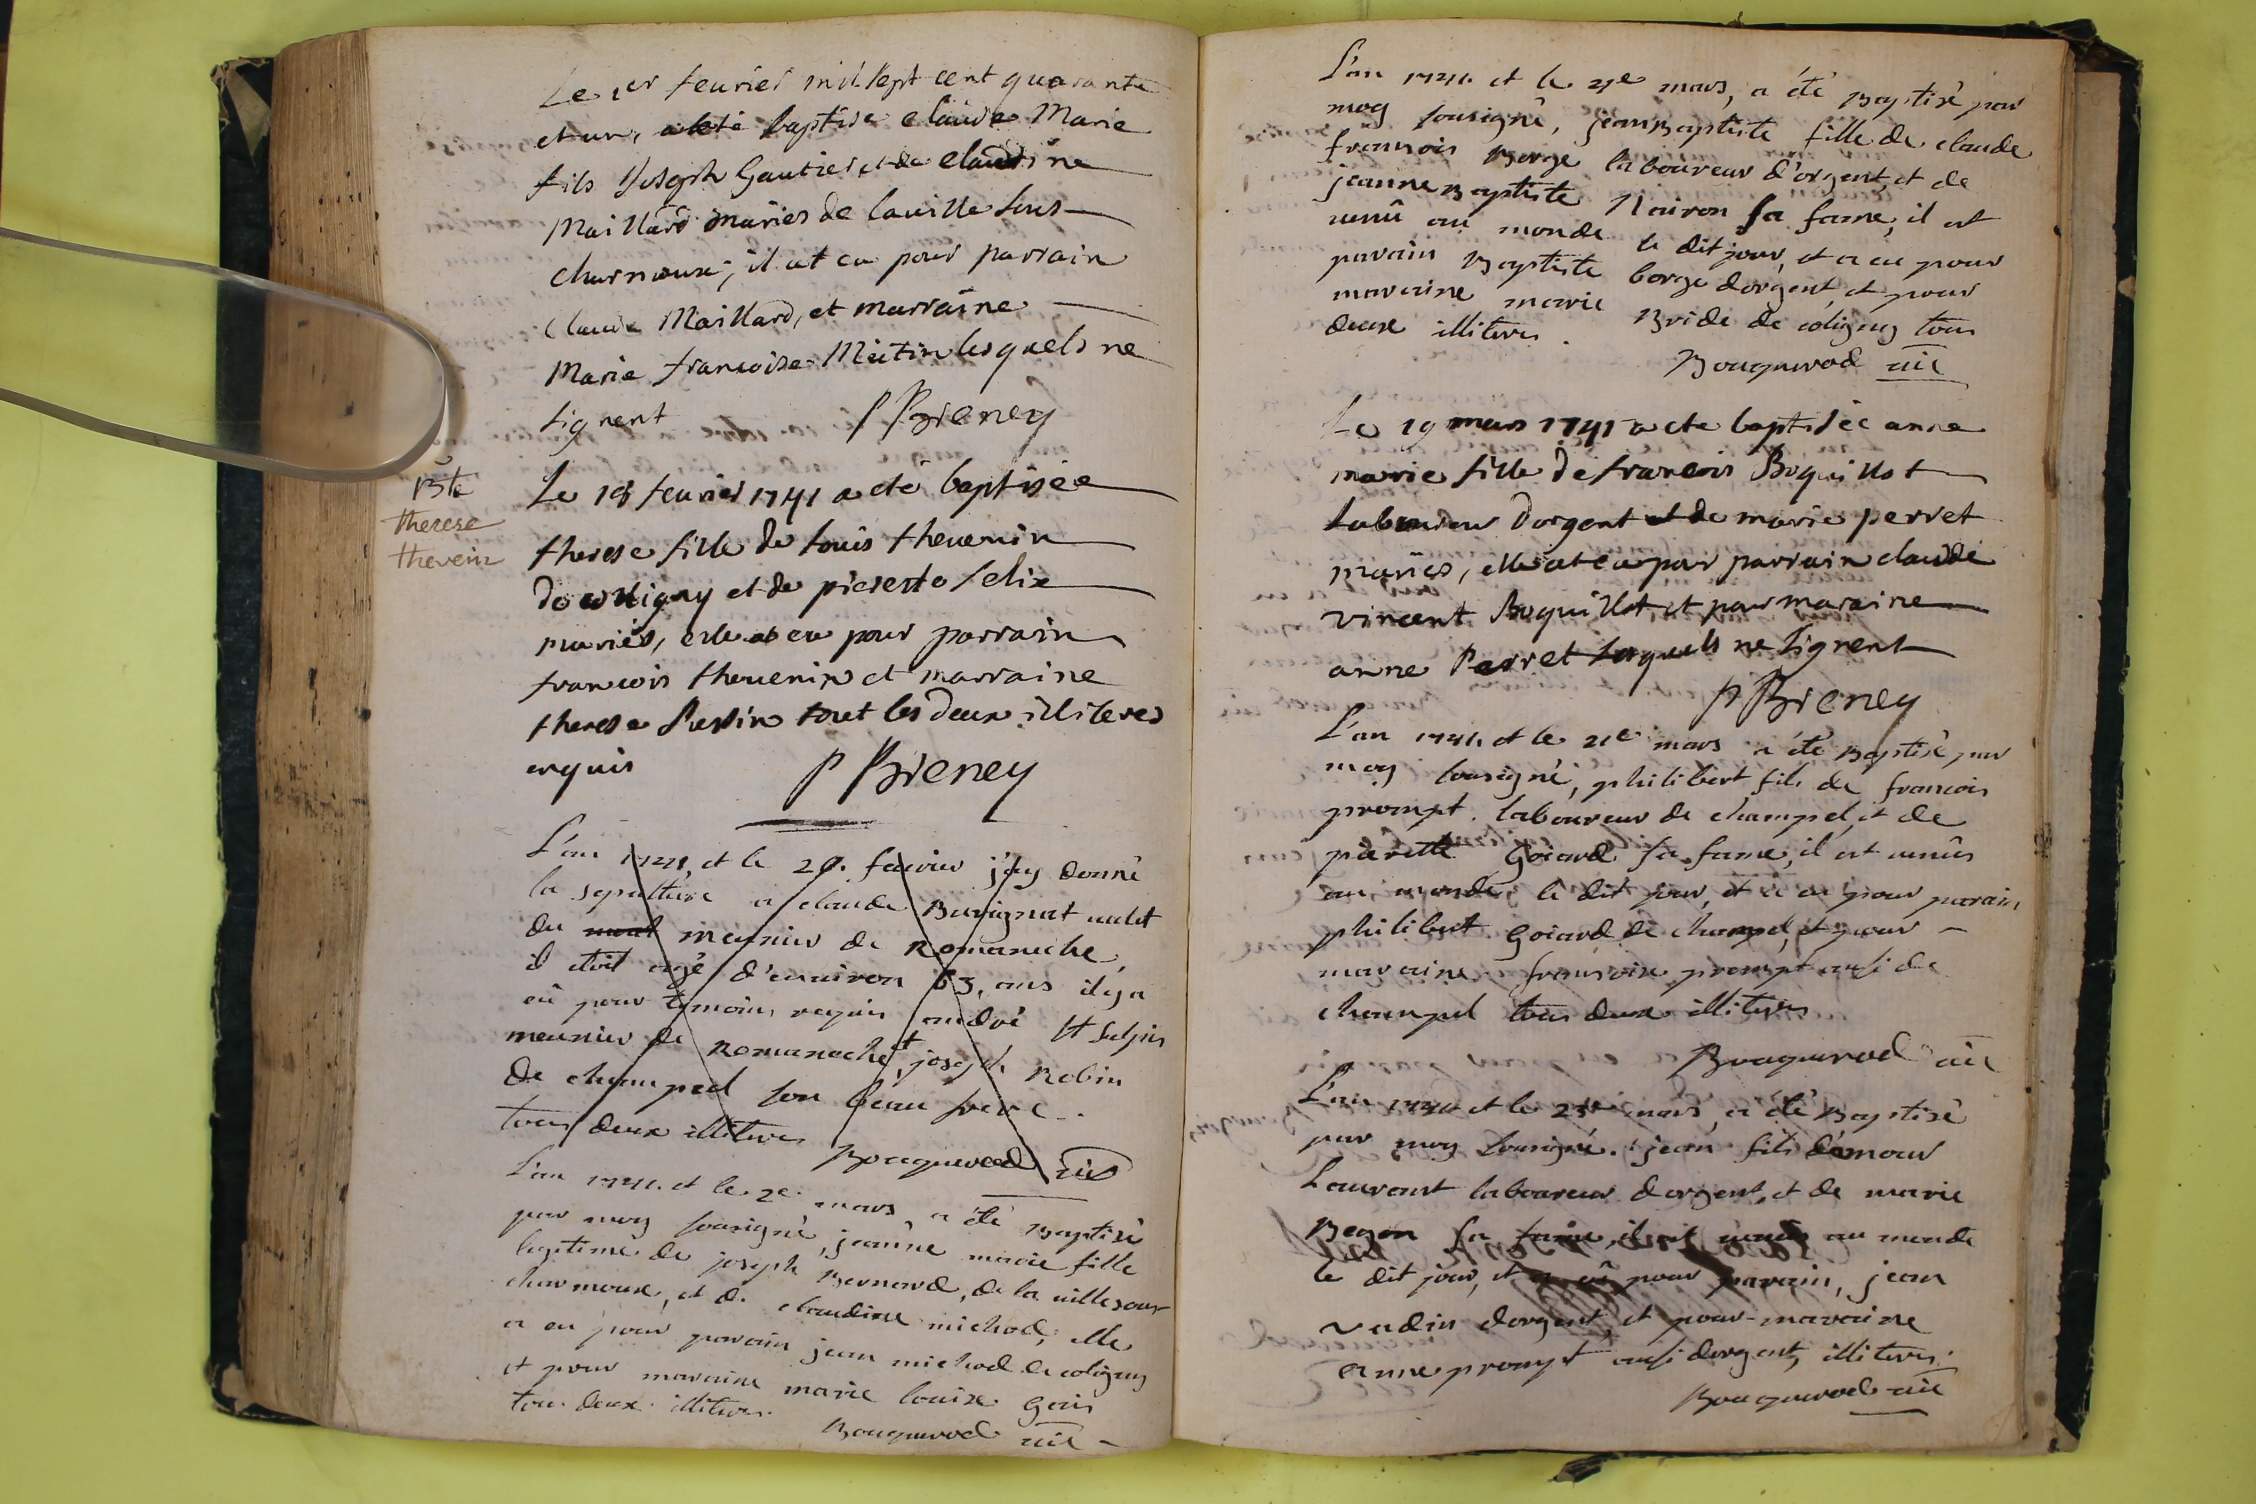 Le 1er feurier mil sept cent quarante
et un, a été baptisé claude Marie
fils Joseph Gautier et de claudine
Maillard mariés de lauille sous
charmoux; il at eu pour parrain
claude Maillard, et marraine
Marie francoise Mietin lesquels ne
signent P Brieney
Bte
therese
thevein
Le 18 feurier 1741 a été baptisée
therese fille de Louis theuenin
de colligny et de pierette felix
mariés, elle at eu pour parrain
francois theuenin et marraine
therese tout les deux illiteres
enquis P Brieney
L'an 1741, et le 20. feuvier j'ay donné
la sepulture a claude Buvignat ualet
du meunier de Romaneche,
il etoit agé d'enuiron 63, ans il y a
eû pour temoins requis andré St Sulpis
meunier de Romaneche et joseph Robin
de champel son beau frere.
tous deux illiteres Bouquerod curé
L'an 1741. et le 2e mars, a été Baptisé
par moy sousigné, jeanne marie fille
legitime de joseph Bernard, de la uille sous
charmoux, et de claudine michod, elle
a eu pour parain jean michod de coligny
et pour maraine marie louise Gois
tous deux illiteres. Bouquerod curé
L'an 1741. et le 4e mars, a été Baptisé par
moy sousigné, jeanBaptiste fille de claude
francois Borge laboureur d'orgent, et de
jeanne Baptiste Nairon sa fame, il est
uenû au monde le dit jour, et a eu pour
parain Baptiste borge dorgent, et pour
maraine marie Bride de coligny tous
deux illiteres.
Bouquerod curé
Le 19 mars 1741 a ete baptisée anne
marie fille de francois Boquillot
laboureur dorgent et de marie perret
mariés, elle at eu pour parrain claude
vincent Boquillot, et pour maraine
anne Perret lesquels ne signent
P Brieney
L'an 1741. et le 21e mars a été Baptisé par
moy sousigné, philibert fils de francois
prompt. laboureur de champel, et de
pierette Goiard sa fame, il est uenûs
au monde le dit jour, et a eu pour parain
philibert Goiard de champel, et pour
maraine francoise prompt ausi de
champel tous deux illiteres
Bouquerod curé
L'an 1741 et le 23e mars, a été Baptisé
par moy sousigné. jean fils d'émour
Laurant laboureur dorgent, et de marie
Begon sa fame, il est uenûs au monde
le dit jour, et a eû pour parain, jean
vudin dorgent, et pour maraine
anne prompt ausi dorgent, illiteres.
Bouquerod curé